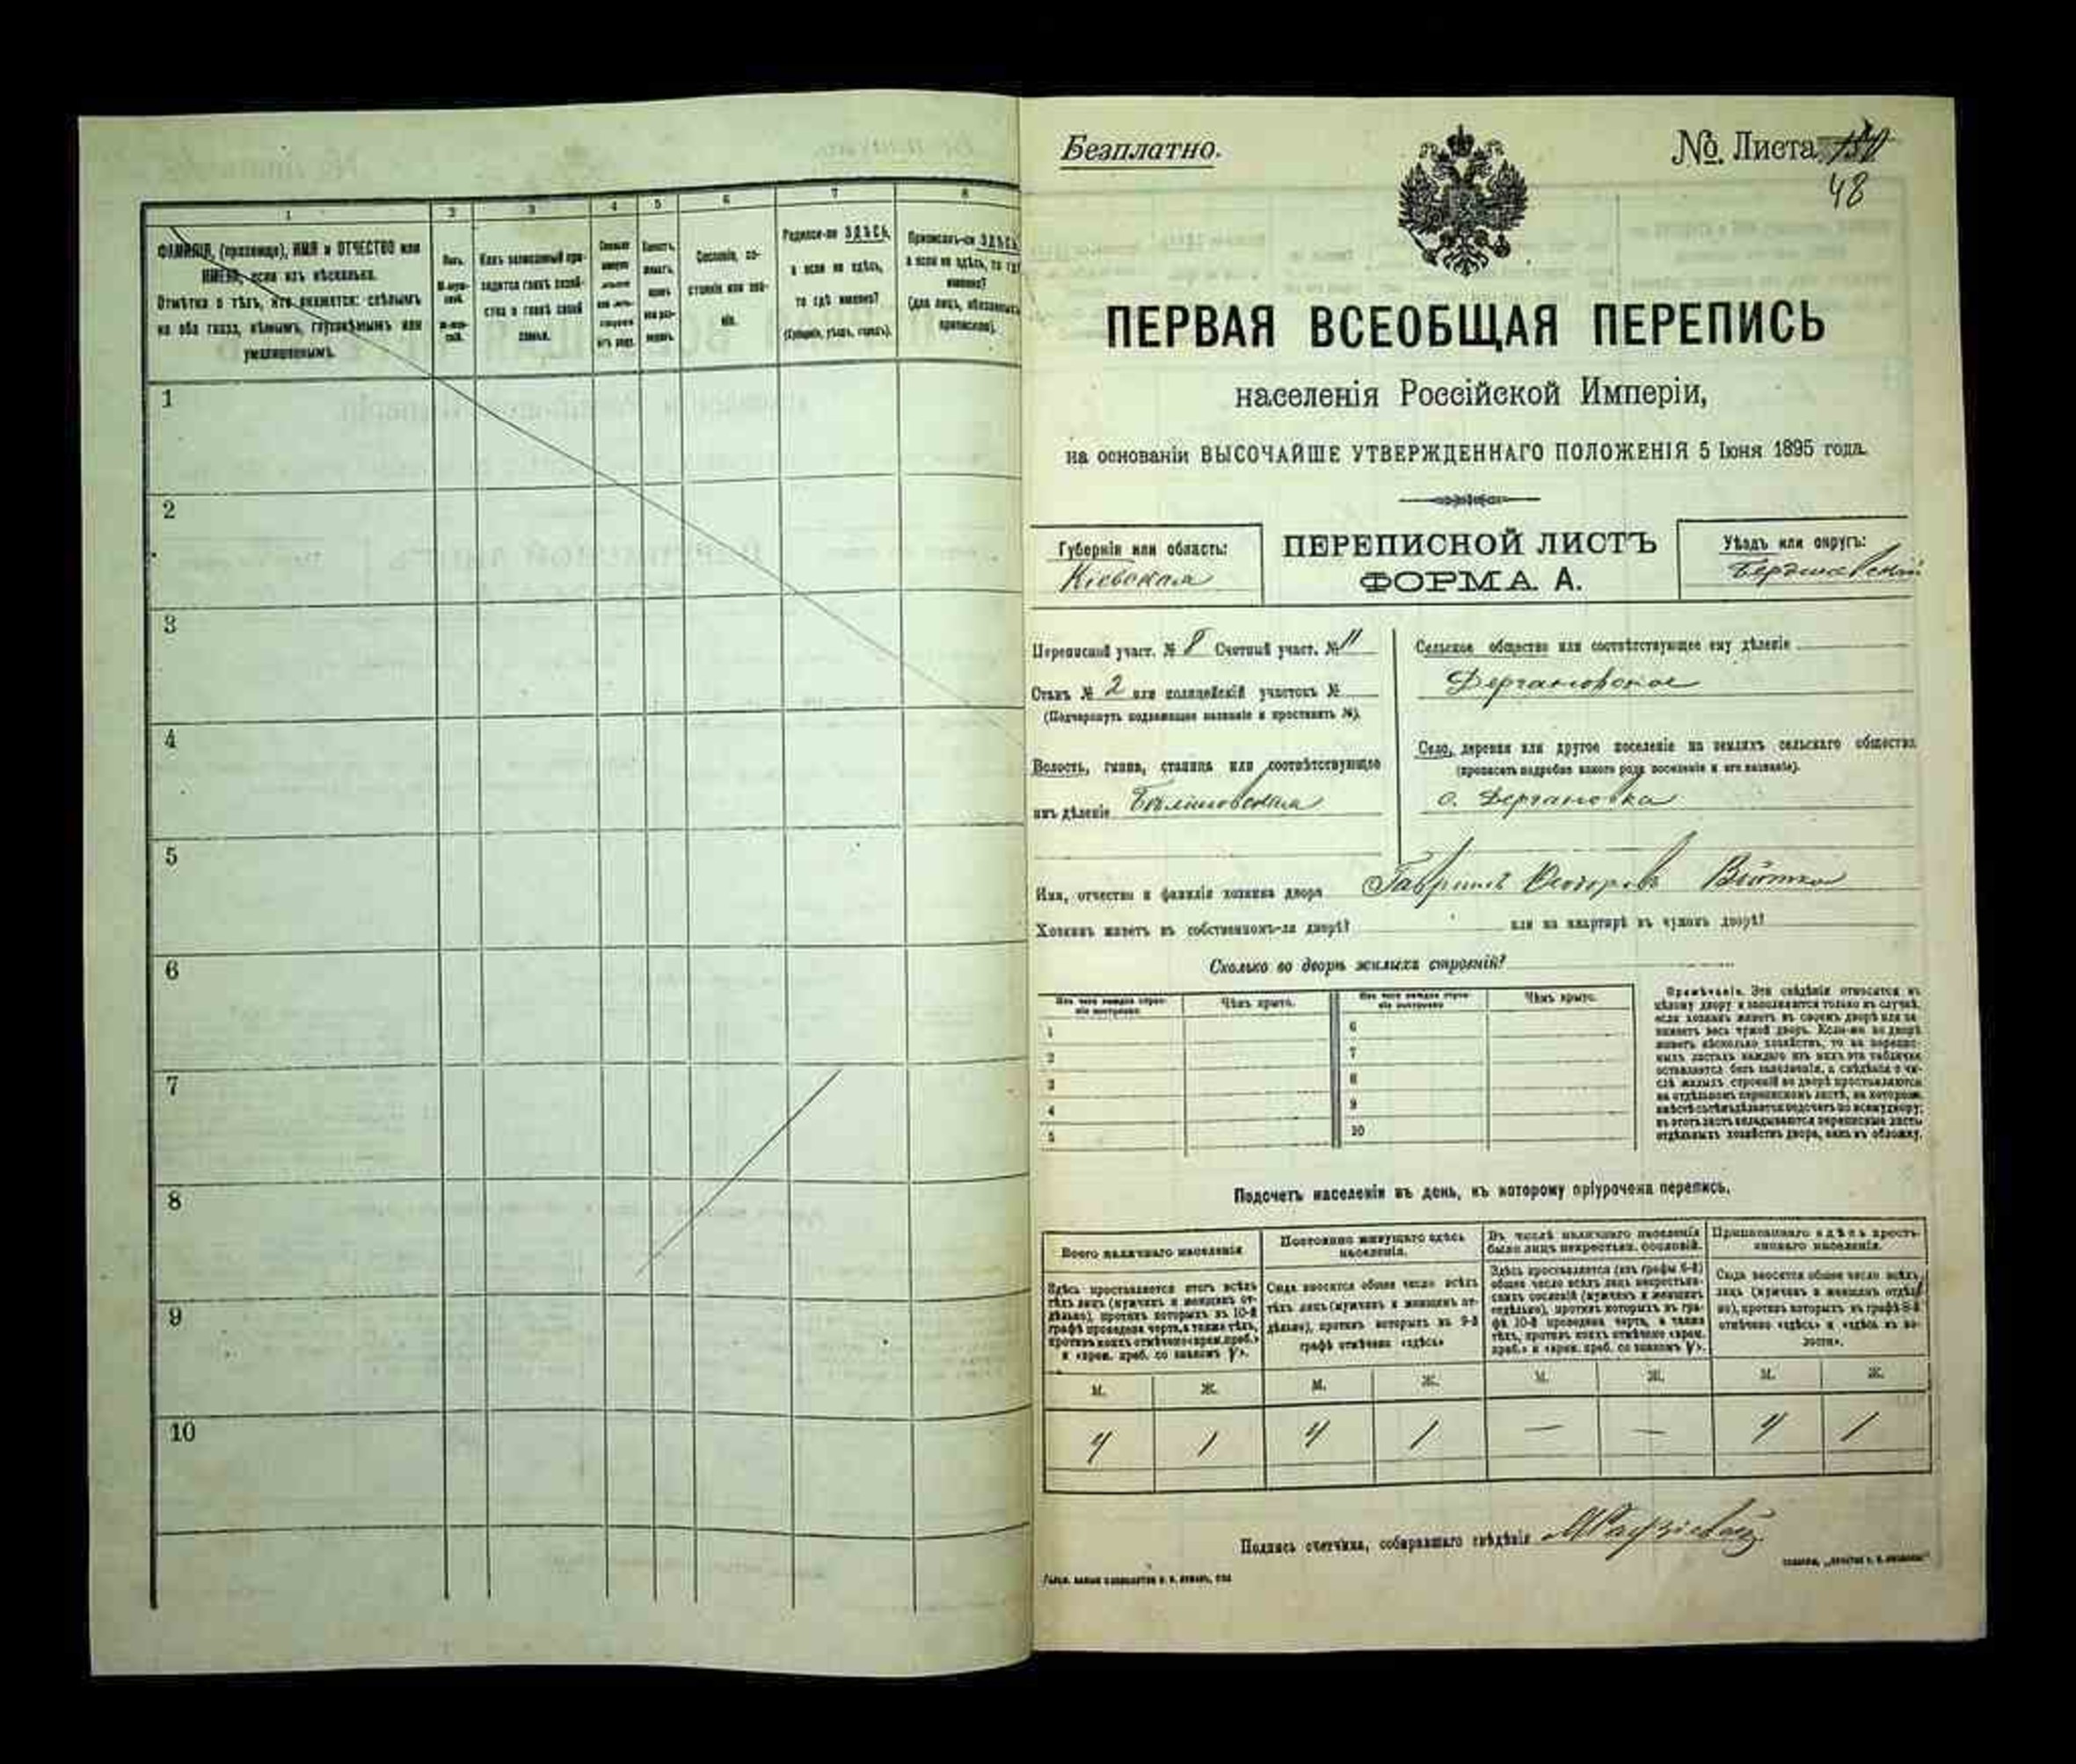 1 2 3 4 5 6 7 8
ФАМИЛІЯ, (прозвище), ИМЯ и ОТЧЕСТВО или
ИМЕНА, если ихъ нѣсколько.
Отмѣтка о тѣхъ, кто окажется: слѣпымъ
на оба глаза, нѣмымъ, глухонѣмымъ или
умалишеннымъ.
Полъ.
Какъ записанный при-
ходится главѣ хозяй-
ства и главѣ своей
семьи.
Сословіе, со-
стояніе или зва-
ніе.
Родился-ли ЗДѢСЬ,
а если не здѣсь,
то гдѣ именно?
(Губернія, уѣздъ, городъ).
Приписанъ-ли ЗДѢСЬ,
а если не здѣсь, то гдѣ
именно?
(для лицъ, обязанныхъ
припискою).
1
2
3
4
5
6
7
8
9
10
Безплатно.
№ Листа
48
ПЕРВАЯ ВСЕОБЩАЯ ПЕРЕПИСЬ
населенія Россійской Имперіи,
на основаніи ВЫСОЧАЙШЕ УТВЕРЖДЕННАГО ПОЛОЖЕНІЯ 5 Іюня 1895 года.
Губернія или область:
Кіевская
ПЕРЕПИСНОЙ ЛИСТЪ
ФОРМА А.
Уѣздъ или округъ:
Бердичевскій
Переписной участ. № 8 Счетный участ. № 11
Станъ № 2 или полицейскій участокъ №
(Подчеркнуть подлежащее названіе и проставить №).
Волость, гмина, станица или соответствующее
имъ дѣленіе
Сельское общество или соотвѣтствующее ему дѣленіе
Дергановское
Село, деревня или другое поселеніе на земляхъ сельскаго общества
(прописать подробно какого рода поселеніе и его названіе).
с. Дергановка
Имя, отчество и фамилія хозяина двора Гавриилъ Ѳеодоровъ
Хозяинъ живетъ въ собственномъ-ли дворѣ? или на квартирѣ въ чужомъ дворѣ?
Сколько во дворѣ жилыхъ строеній?
Изъ чего каждое строе-
ніе построено
Чѣмъ крыто.
Изъ чего каждое строе-
ніе построено
Чѣмъ крыто.
1 6
2 7
3 8
4 9
5 10
Примѣчаніе. Эти свѣдѣнія относятся къ
цѣлому двору и заполняются только въ случаѣ,
если хозяинъ живетъ въ своемъ дворѣ или за-
нимаетъ весь чужой дворъ. Если-же во дворѣ
живетъ нѣсколько хозяйствъ, то на перепис-
ныхъ листахъ каждаго изъ нихъ эта табличка
оставляется безъ заполненія, а свѣдѣнія о чи-
слѣ жилыхъ строеній во дворѣ проставляются
на отдѣльномъ переписномъ листѣ, на которомъ
вмѣстѣ съ тѣмъ дѣлается подсчетъ по всему двору;
въ этотъ листъ вкладываются переписные листы
отдѣльныхъ хозяйствъ двора, какъ въ обложку.
Подсчетъ населенія въ день, къ которому пріурочена перепись.
Всего наличнаго населенія
Постоянно живущаго здѣсь
населенія.
Въ числѣ наличнаго населенія
было лицъ некрестьян. сословій.
Приписаннаго здѣсь кресть-
янскаго населенія.
Здѣсь проставляется итогъ всѣхъ
тѣхъ лицъ (мужчинъ и женщинъ от-
дѣльно), противъ которыхъ въ 10-й
графѣ проведена черта, а также тѣхъ,
противъ коихъ отмѣчено «врем. преб.»
и «врем. преб. со знакомъ V».
Сюда вносится общее число всѣхъ
тѣхъ лицъ (мужчинъ и женщинъ от-
дѣльно), противъ которыхъ въ 9-й
графѣ отмѣчено «здѣсь»
Здѣсь проставляется (изъ графы 6-й)
общее число всѣхъ лицъ некрестьян-
скихъ сословій (мужчинъ и женщинъ
отдѣльно), противъ которыхъ въ гра-
фѣ 10-й проведена черта, а также
тѣхъ, противъ коихъ отмѣчено «врем.
преб.» и «врем. преб. со знакомъ V».
Сюда вносится общее число всѣхъ
лицъ (мужчинъ и женщинъ отдѣль-
но), противъ которыхъ въ графѣ 8-й
отмѣчено «здѣсь» и «здѣсь въ во-
лости».
М. Ж. М. Ж. М. Ж. М. Ж.
4 1 4 1 — — 4 1
Подпись счетчика, собиравшаго свѣдѣнія